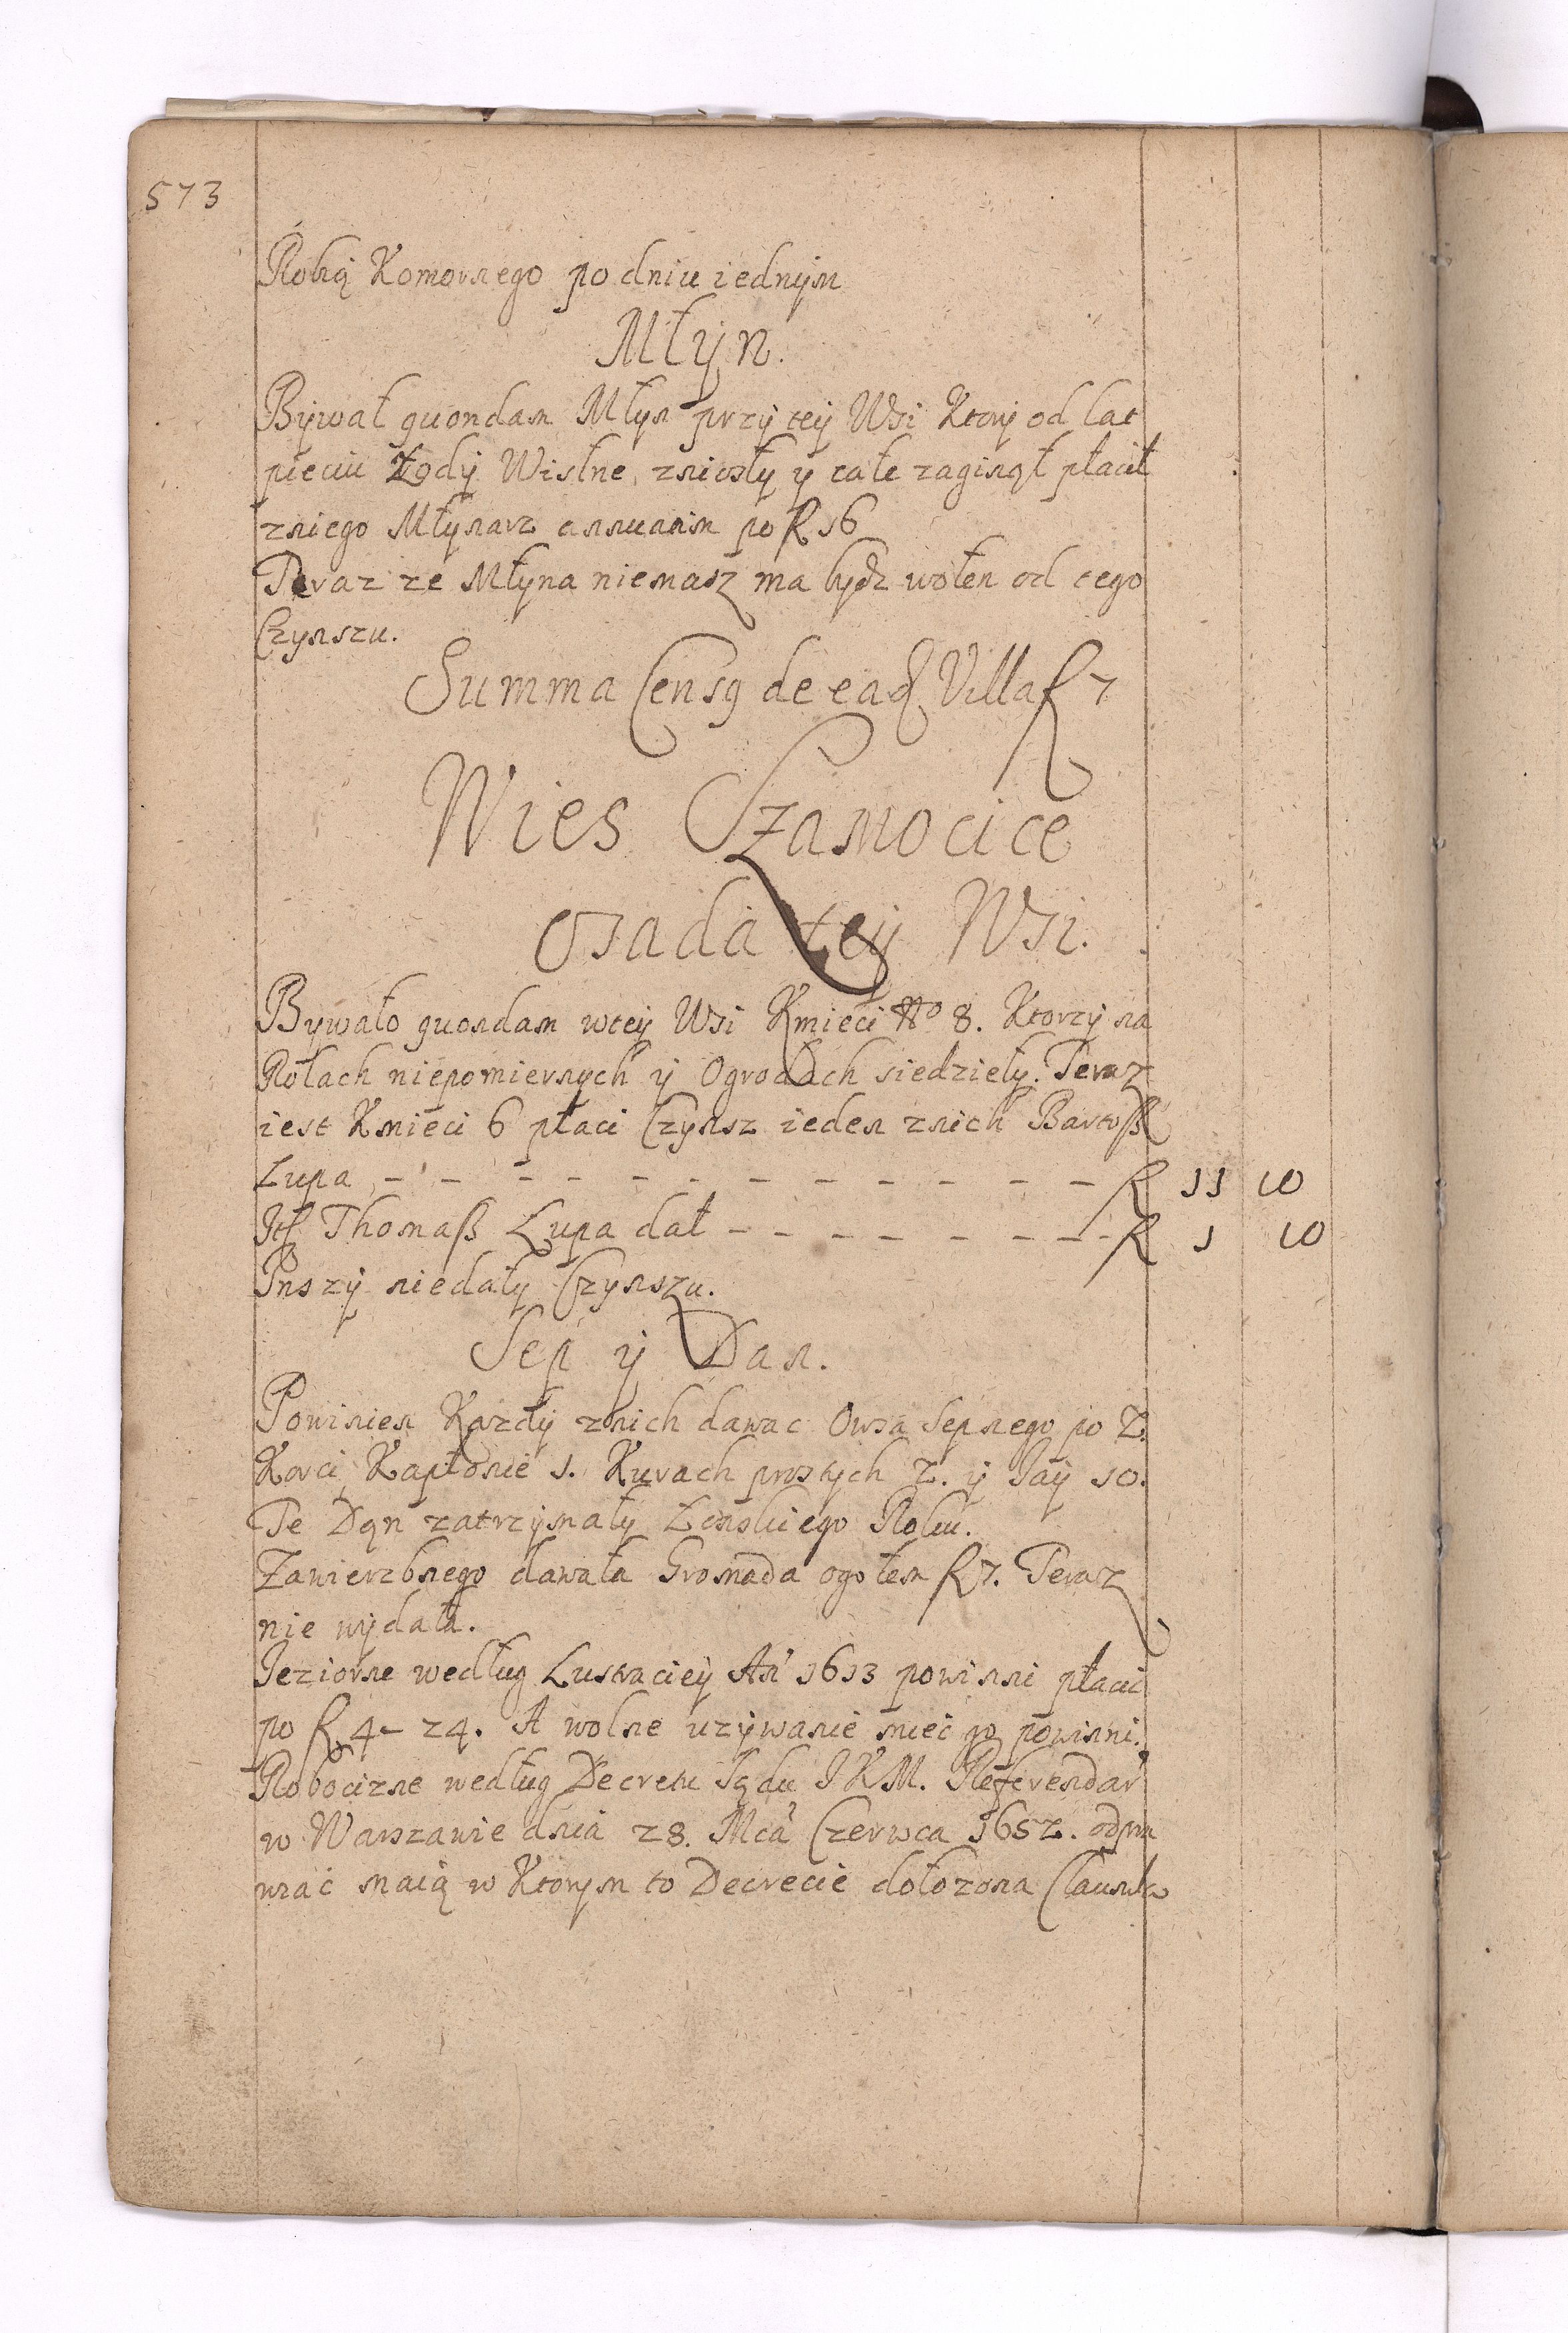 573
Robią Komornego po dniu iednÿm
Młÿn.
Bÿwał quondam Młÿn przÿ teÿ Wsi Ktorÿ od lat
pieciu Wislne, zniosłÿ ÿ całe zaginął płacił
zniego Młÿnarz annuatim po fl 16
Teraz ze Młÿna niemasz ma bÿdz wolen od tego
Czÿnszu.
Summa Censq de eađ Villa fl 7
Wies Szamocice
Osada teÿ Wsi.
Bÿwało quondam wteÿ Wsi Kmieci No 8. Ktorzÿ na
Rolach niepomiernÿch ÿ Ogrodach siedziely. Teraz
iest Kmieci 6 płaci Czÿnsz ieden znich Bartoß
Łupa – – – – – – – – – – – – fl 11 10
Itȩ Thomaß Łupa dał – – – – – – – fl 1 10
Inszÿ niedałÿ Czÿnszu.
Sep ÿ Dan.
Powinien Kazdÿ znich dawac Owsa Sepnego po 2.
Korci Kapłonie 1. Kurach prostÿch 2. ÿ Jaÿ 10.
Te Dąn zatrzÿmałÿ Łonskiego Roku.
Zawierzbnego dawała Gromada ogołem fl 7. Teraz
nie wÿdała.
Jeziorne według Lustracieÿ An 1613 powinni płacic
po fl 4 – 24. A wolne uzÿwanie miec go powinni.
Robocizne według Decretu Sądu JKM. Referendar
w Warszawie dnia 28. Mca Czerwca 1652. odpra
wiać maią w Ktorÿm to Decrecie dołozona Clausula